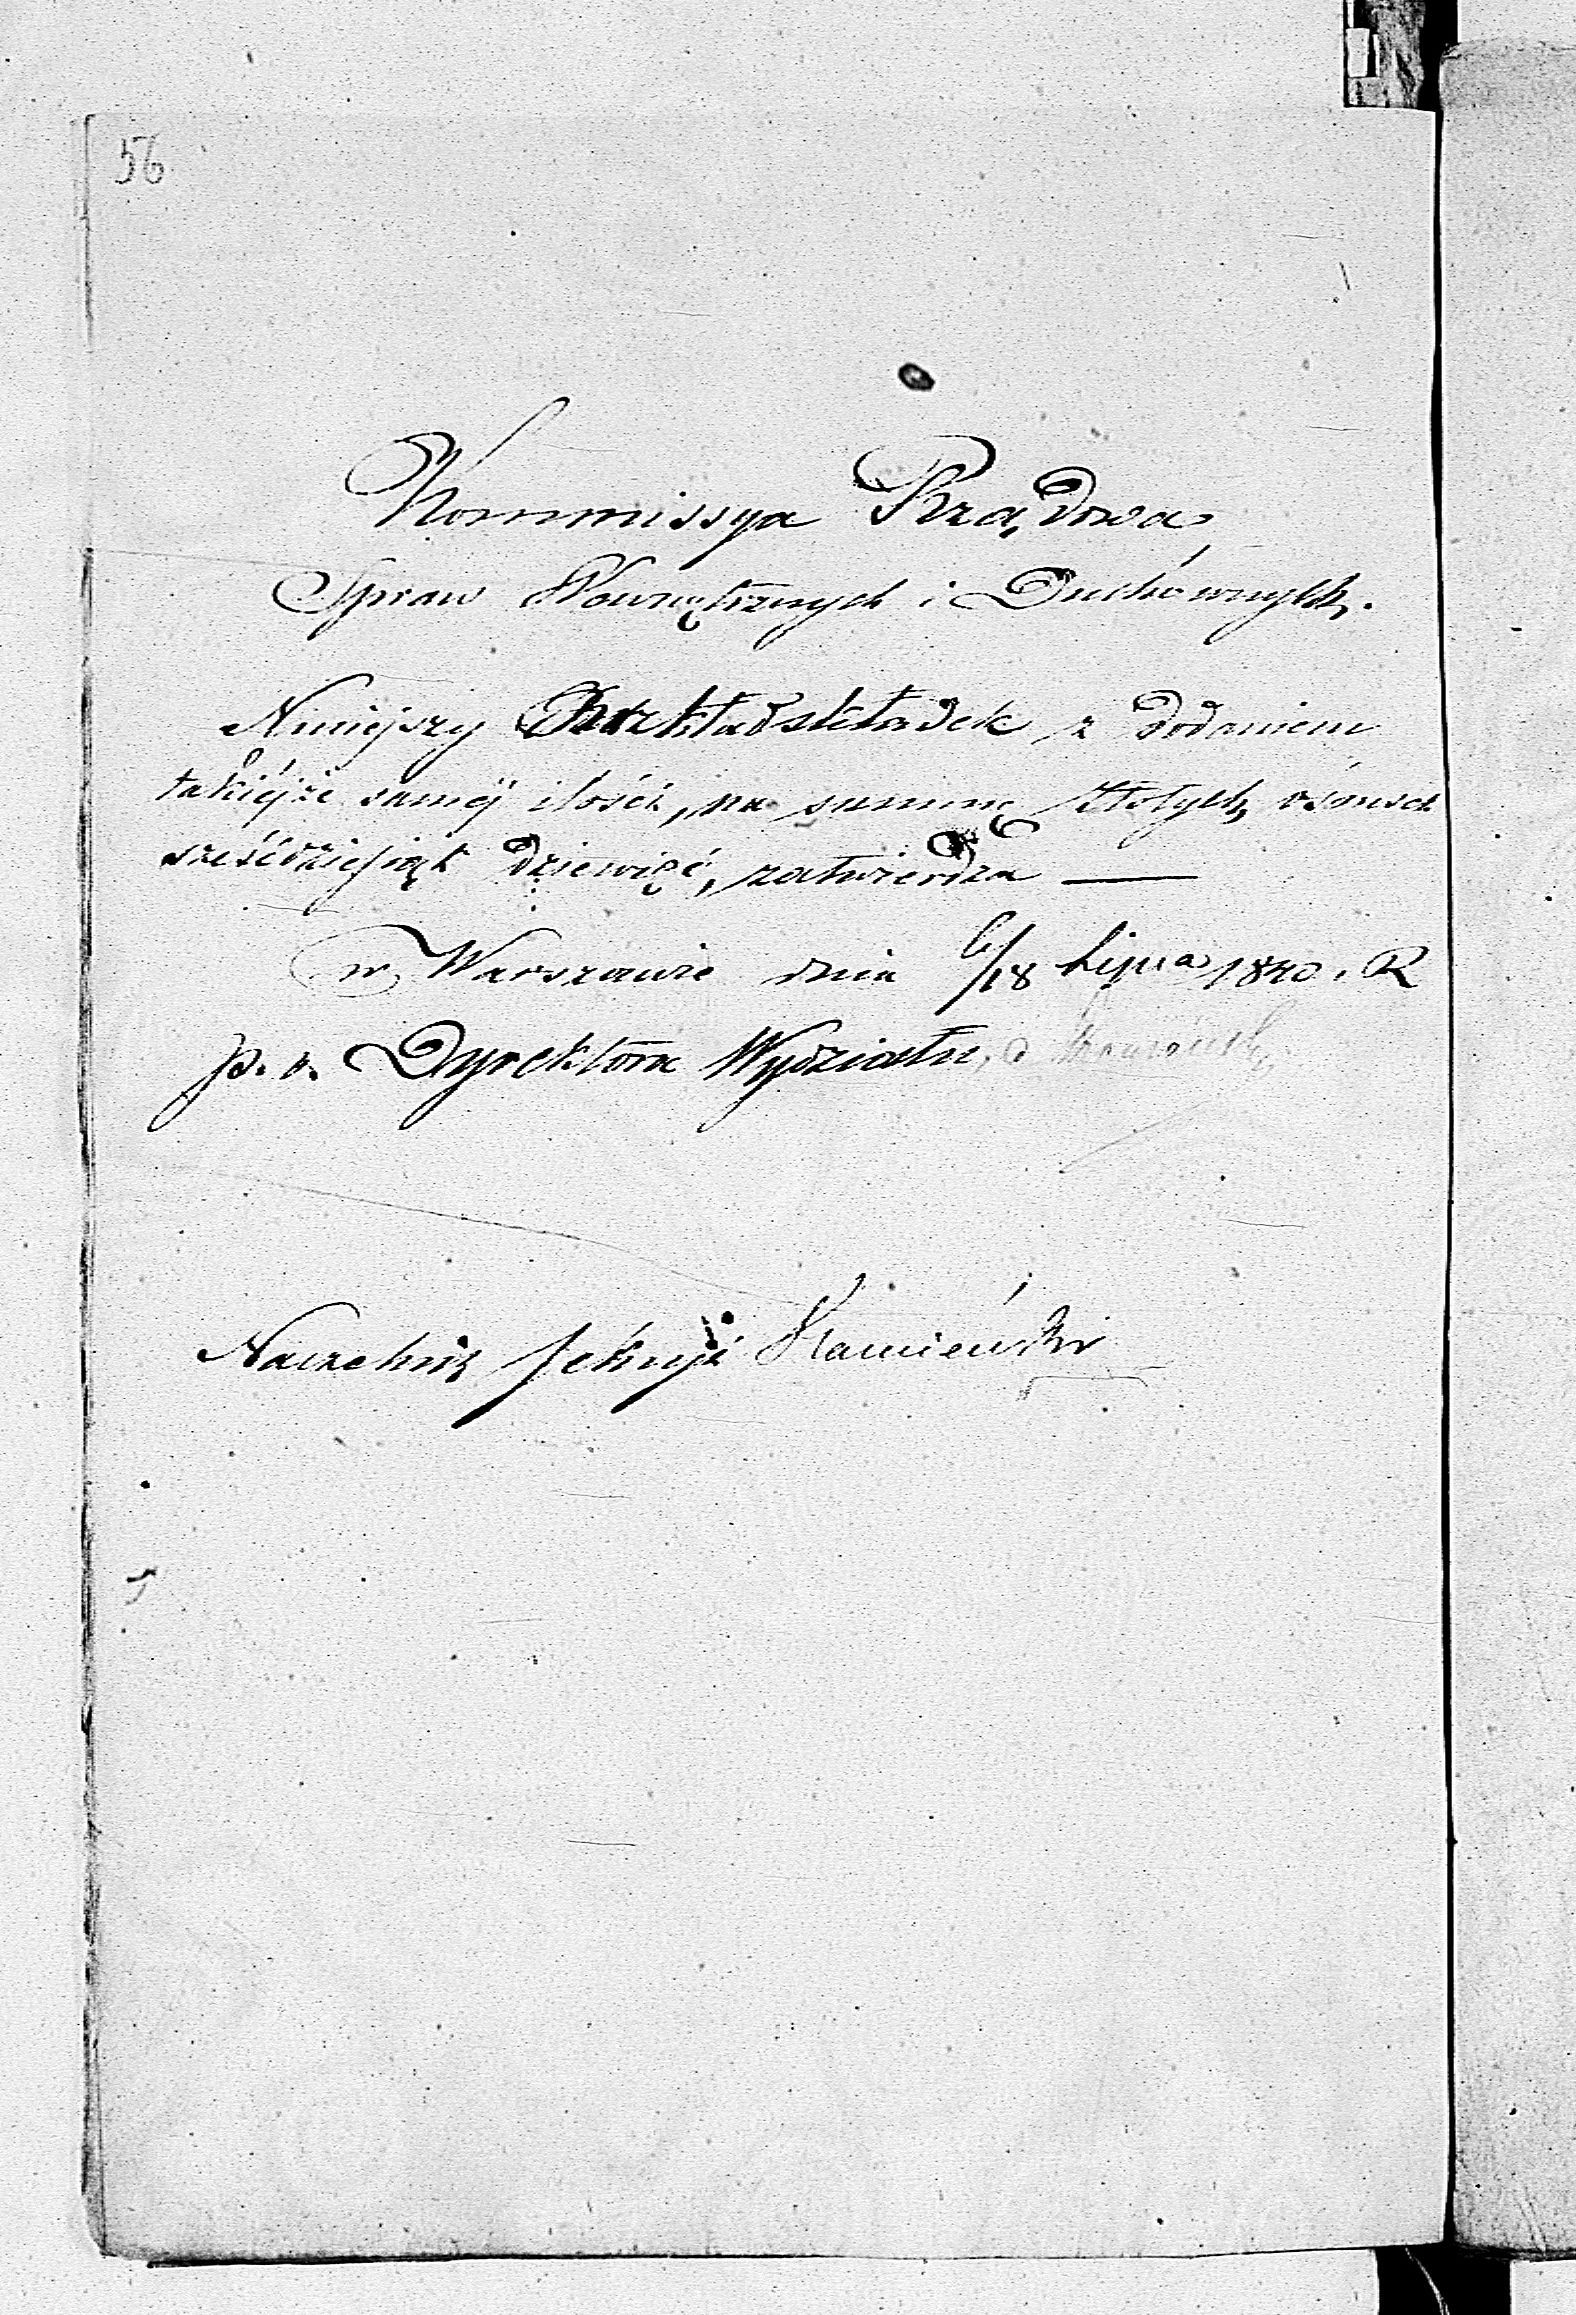 56
Kommissya Rządowa
Spraw Wewnętrznych i Duchównych.
Niniejszy Rozkład składek z dodaniem
takiéjże saméj ilości, na summę Złotych ośmset
sześćdziesiąt dziewięć, zatwierdza —
w Warszawie dnia 6/18 Lipca 1840. R
p. o. Dyrektora Wydziału
Naczelnik Sekcyi Kamieński